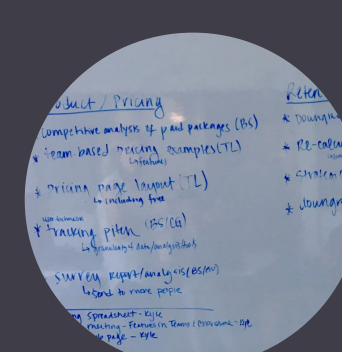 oduct / Pricing
Competitive analysis of paid packages (BS)
* team-based pricing examples (TL)
↳ features
* Pricing page layout (TL)
↳ including free
* Tracking pitch (BS/CG)
↳ granularity of data/analysis tools
Survey report/analysis (BS/
↳ send to more people
Spreadsheet - Kyle
meeting - Features in Teams
page - Kyle
Reten
* Downgra
* Re-calcu
* Strateg
* downgra